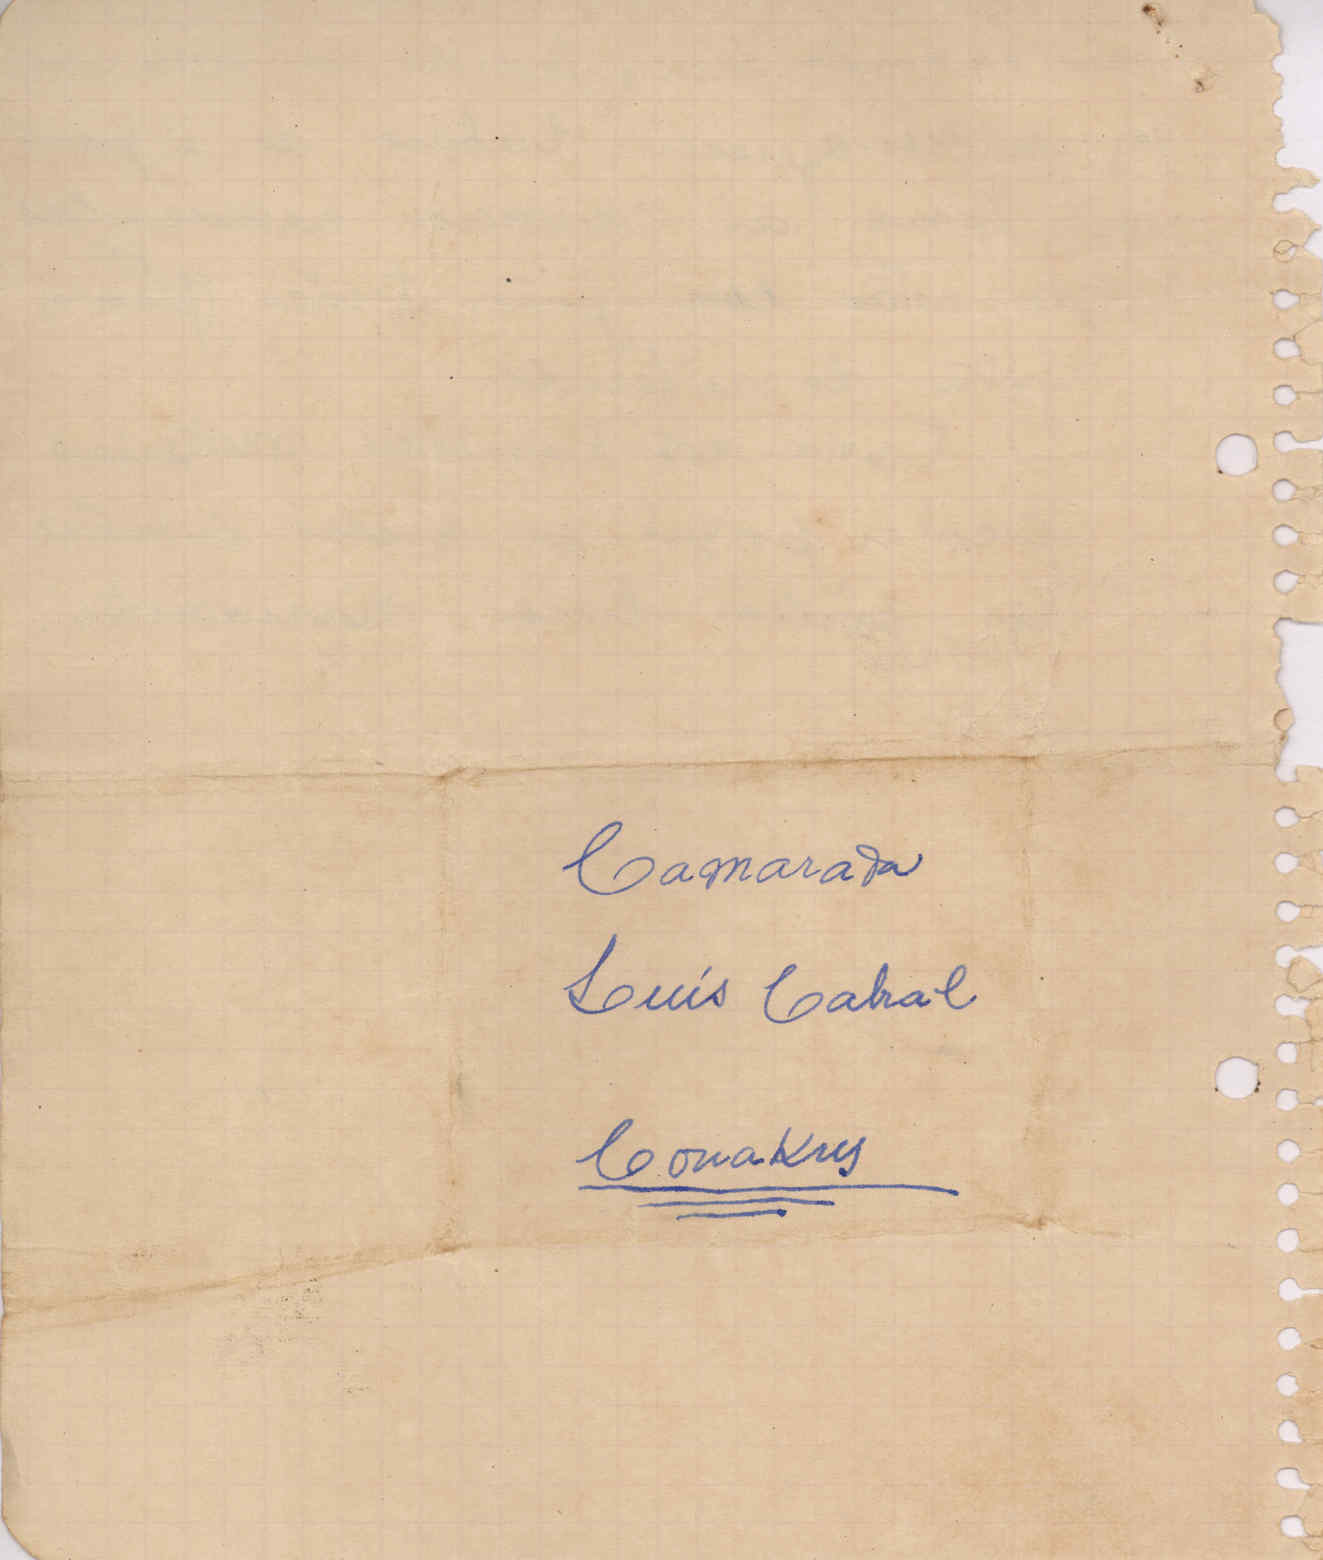 Camarada
Luís Cabral
Conakry